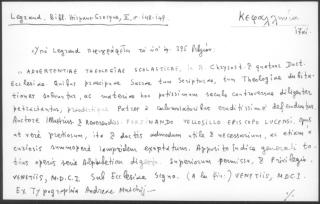 Legrand, Bibl. Hispano-Grecque, II, σ. 148-149.
Κεφαλληνία
Ὑπὸ Legrand περιγράφεται τὸ ὑπ' ἀρ. 396 βιβλίον.
« ADVERTENTIAE THEOLOGIAE SCHOLASTICAE, in B. Chrysost. & quatuor Doct.
Ecclesiae Quibus praecipuae Sacrae tum Scripturae, tum Theologiae dubita-
tiones solvuntur, ac materiae hoc potissimum seculo controversae diligenter
pertractantur, Patres a calumniatoribus eruditissime defenduntur,
Auctore Illustriss. & Reverendiss. FERDINANDO VELOSILLO EPISCOPO LUCENSI, opus
ut vere pretiosum, ita & doctis admodum utile & necessarium, ac etiam
curiosis summopere exoptatum. Apposito Indice generali to-
tius operis serie Alphabetica digesto. Superiorum permissu, & Privilegio.
VENETIIS, M.D.C.I. Sub Ecclesiae Signo. (A la fin:) VENETIIS, MDCI.
Ex Typographia Andreae Muschij —